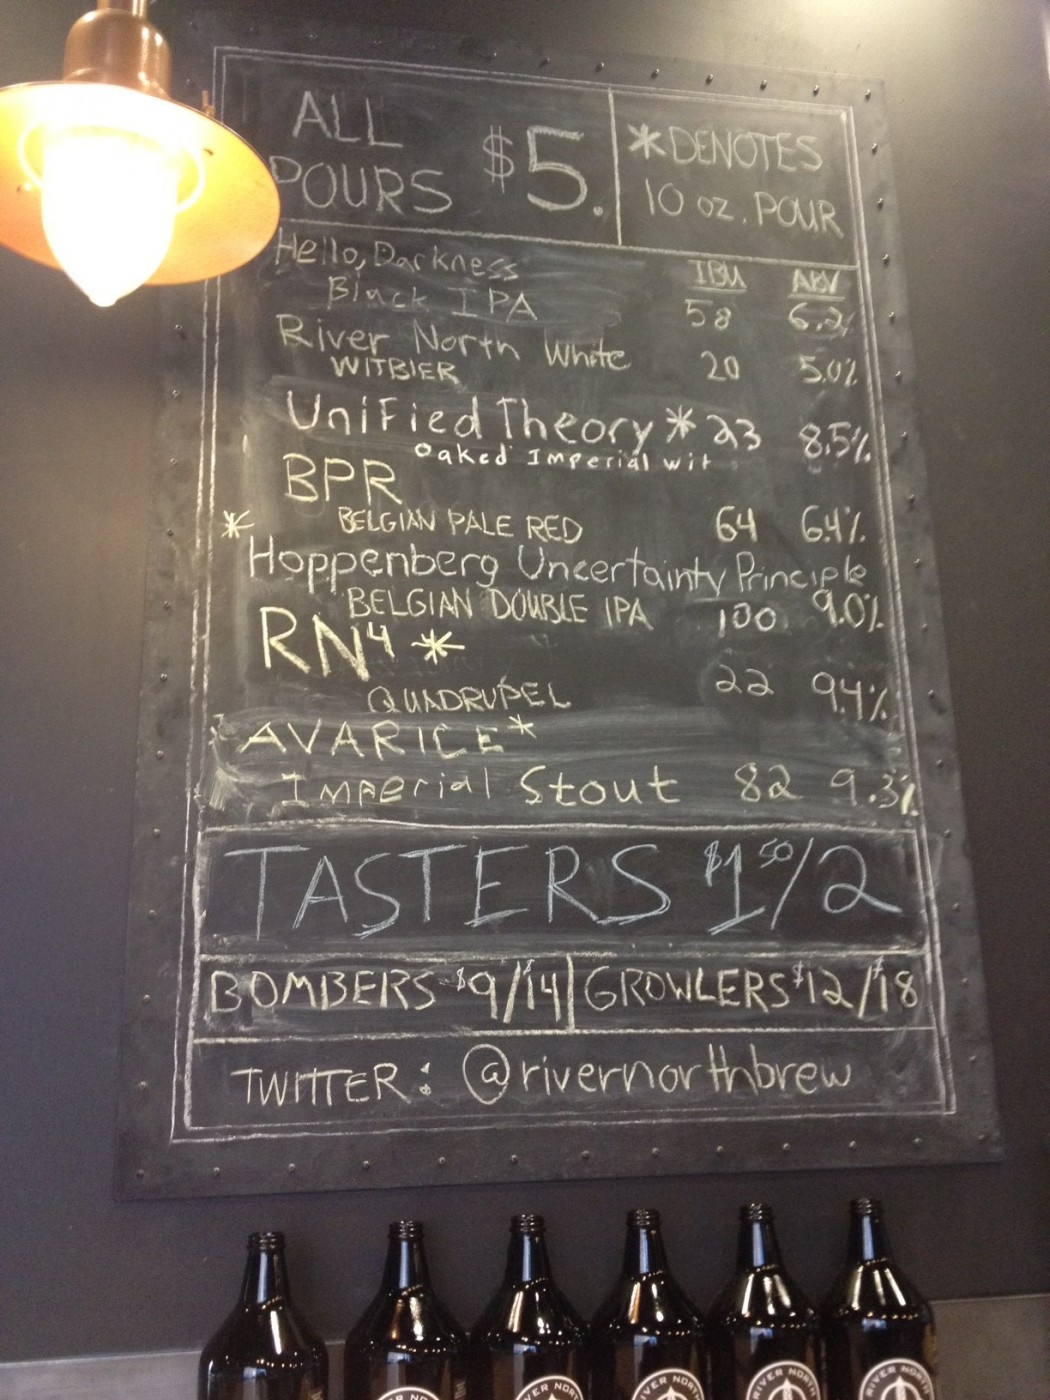 ALL POURS $5.
*DENOTES 10 oz. POUR
IBU ABV
Hello, Darkness
Black IPA 58 6.2%
River North White
WITBIER 20 5.0%
Unified Theory * 23 8.5%
Oaked Imperial wit
BPR
BELGIAN PALE RED 64 6.4%
* Hoppenberg Uncertainty Principle
BELGIAN DOUBLE IPA 100 9.0%
RN4 *
QUADRUPEL 22 9.4%
AVARICE *
Imperial Stout 82 9.3%
TASTERS $1 50/2
BOMBERS $9/$14 GROWLERS $12/$18
TWITTER: @rivernorthbrew
RIVER NORTH
RIVER NORTH
RIVER NORTH